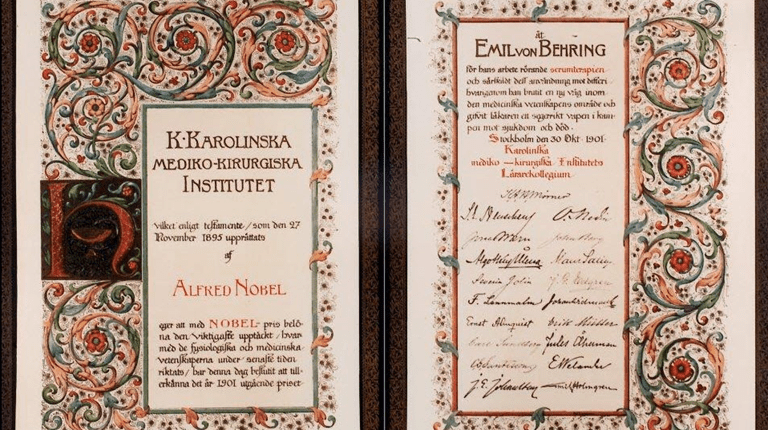 K·KAROLINSKA
MEDIKO-KIRURGISKA
INSTITUTET
vilket enligt testamente, som den 27
November 1895 upprättats
af
ALFRED NOBEL
eger att med NOBEL-pris belö-
na den viktigaste upptäckt, hvar-
med de fysiologiska och medicinska
vetenskaperna under senaste tiden
riktats, har denna dag beslutit att till-
erkänna det år 1901 utgående priset
åt
EMIL VON BEHRING
för hans arbete rörande serumterapien
och särskildt dess användning mot difteri
hvarigenom han brutit en ny väg inom
den medicinska vetenskapens område och
gifvit läkaren ett segerrikt vapen i kam-
pen mot sjukdom och död.
Stockholm den 30 Okt. 1901.
Karolinska
mediko-kirurgiska Institutets
Lärarekollegium.
Mörner
F.
Ernst Almquist Erik Müller
Jules Åkerman
E. Welander
J. E. Johansson Emil Holmgren